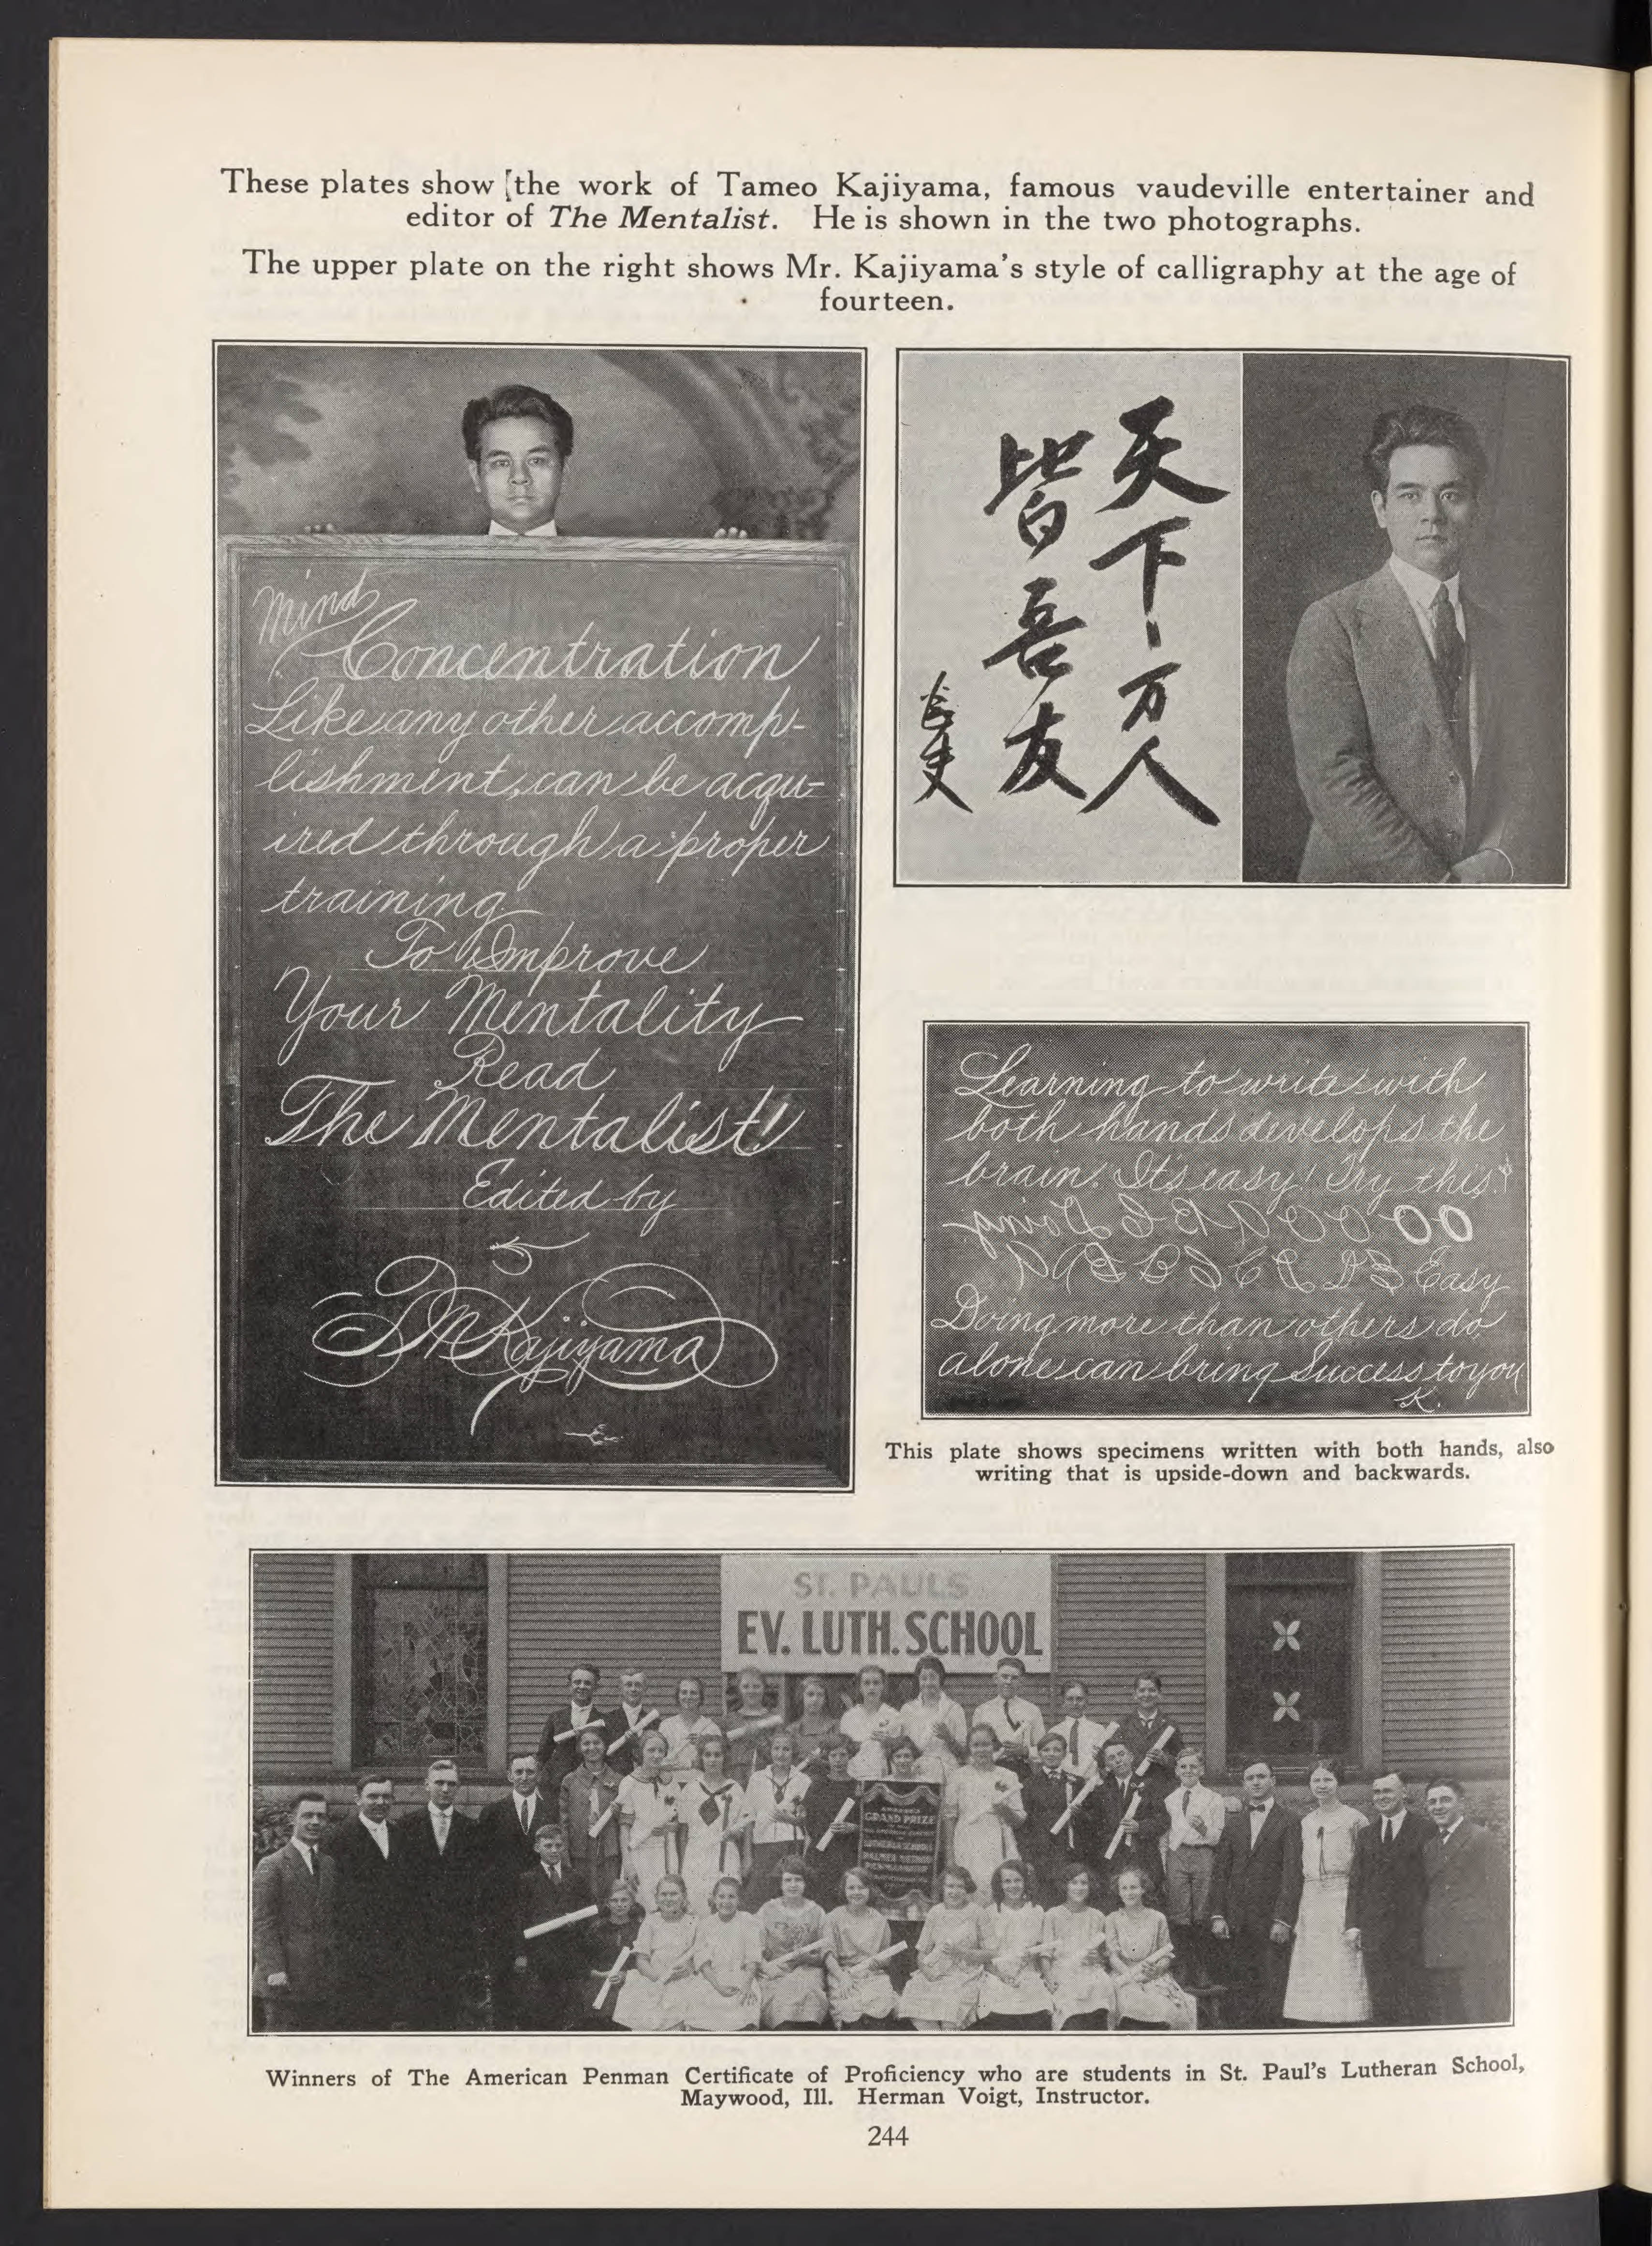 These plates show [the work of Tameo Kajiyama, famous vaudeville entertainer and
editor of The Mentalist. He is shown in the two photographs.
The upper plate on the right shows Mr. Kajiyama's style of calligraphy at the age of
fourteen.
Mind
Concentration
Like any other accomp-
lishment, can be acqu-
ired through a proper
training.
To Improve
Your Mentality
Read
The Mentalist!
Edited by
TMKajiyama
天下万人
皆吾友
Learning to write with
both hands develops the
brain. It's easy! Try this!
Doing
Easy
Doing more than others do
alone can bring Success to you
K.
This plate shows specimens written with both hands, also
writing that is upside-down and backwards.
ST. PAULS
EV. LUTH. SCHOOL
GRAND PRIZE
LUTHERAN SCHOOLS
PALMER METHOD
PENMANSHIP
Winners of The American Penman Certificate of Proficiency who are students in St. Paul's Lutheran School,
Maywood, Ill. Herman Voigt, Instructor.
244